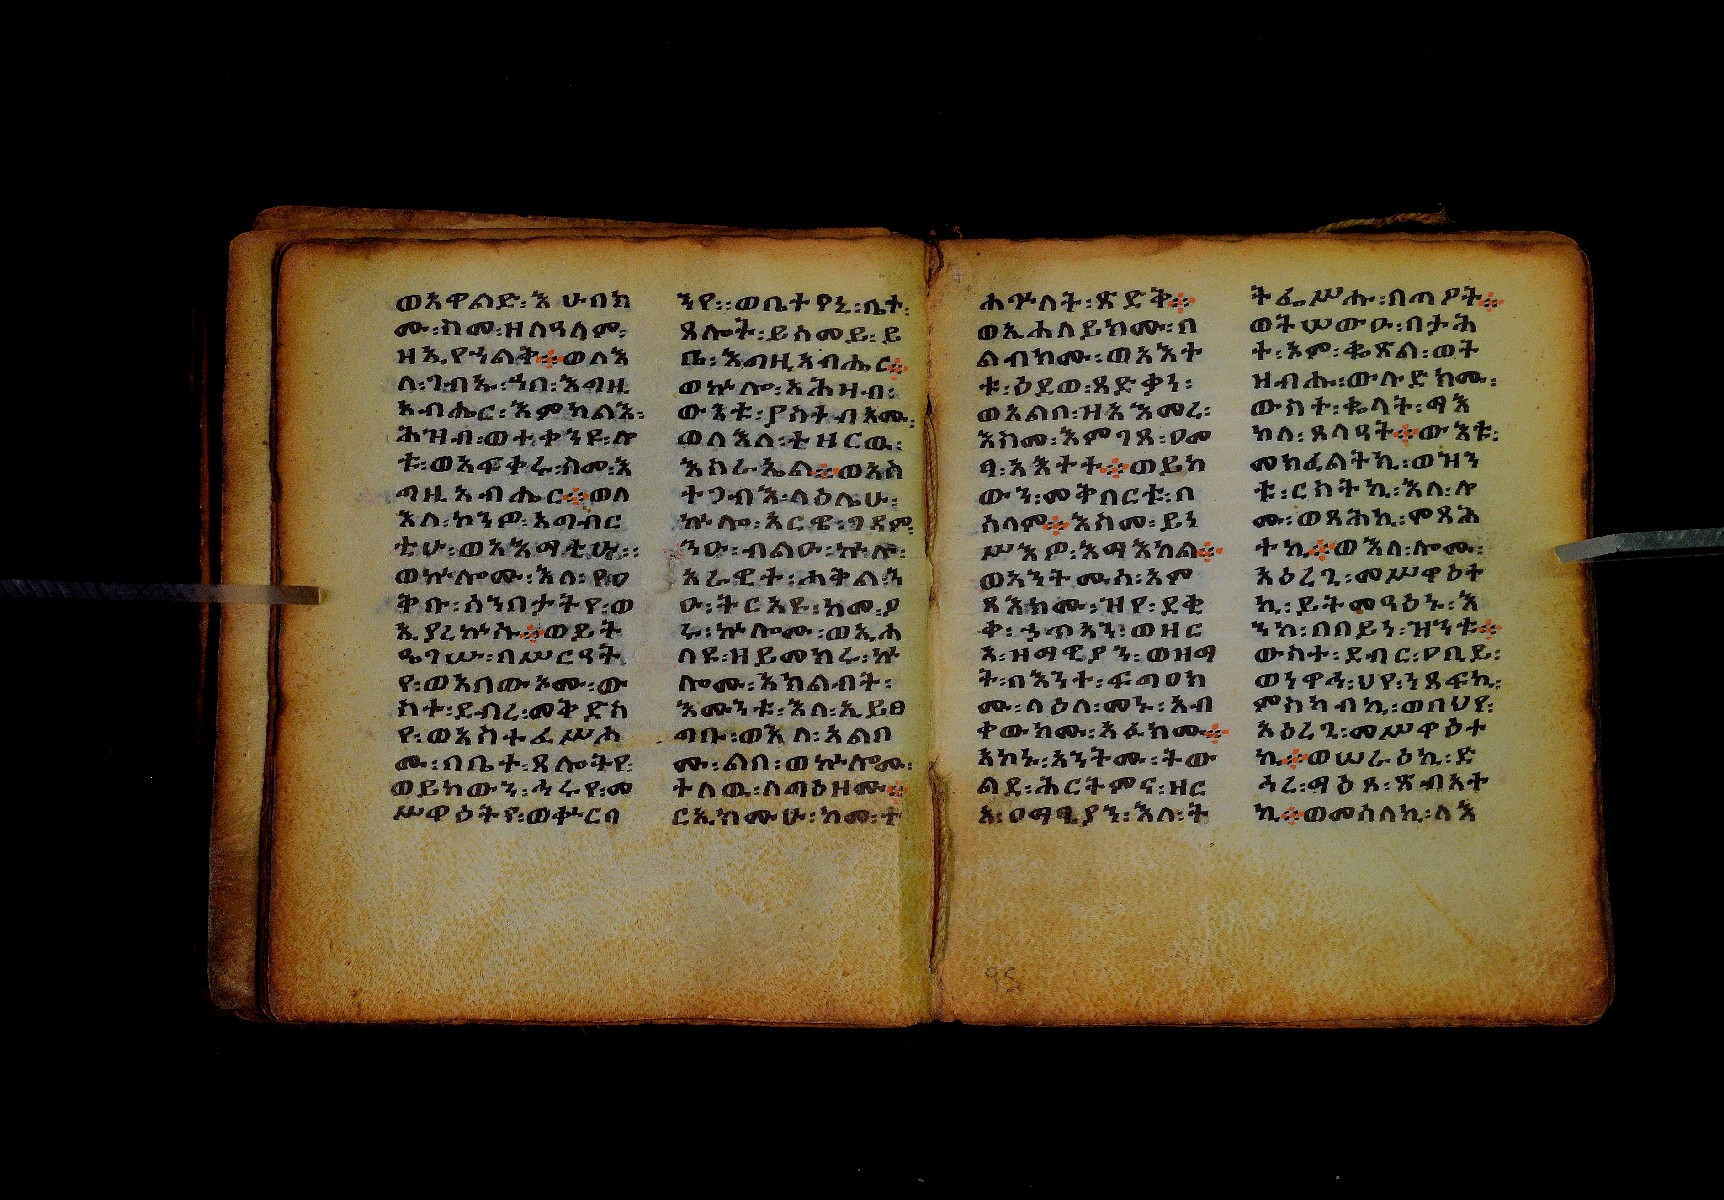 ወአዋልድ፡እሁበክ
ሙ፡ስመ፡ዘለዓለም፡
ዘኢየኀልቅ፨ወለእ
ለ፡ገብኡ፡ኀበ፡እግዚ
አብሔር፡እምካልእ፡
ሕዝብ፡ወተቀንዩ፡ሎ
ቱ፡ወአፍቀሩ፡ስመ፡እ
ግዚአብሔር፨ወለ
እለ፡ኮንዎ፡አግብር
ቲሁ፡ወእእማቲሁ፡፡
ወኵሎሙ፡እለ፡የዐ
ቅቡ፡ሰንበታትየ፡ወ
ኢያረኵሱ፨ወይት
ዔገሡ፡በሥርዓት
የ፡ወእበውኦሙ፡ው
ስተ፡ደብረ፡መቅድስ
የ፡ወአስተፌሥሖ
ሙ፡በቤተ፡ጸሎትየ
ወይከውን፡ሓሩየ፡መ
ሥዋዕትየ፡ወቍርባ
ንየ፡፡ወቤተየኒ፡ቤተ፡
ጸሎት፡ይሰመይ፡ይ
ቤ፡እግዚአብሔር፨
ወኵሎ፡አሕዛብ፡
ውእቱ፡ያስተብእሙ፡
ወለእለ፡ተዘርዉ፡
እስራኤል፨ወአስ
ተጋብእ፡ላዕሌሁ፡
ኵሎ፡አርዌ፡ገዳም፡
ንዑ፡ብልዑ፡ኵሎ፡
አራዊተ፡ሐቅል፡ን
ዑ፡ትርአዩ፡ከመ፡ዖ
ሩ፡ኵሎሙ፡ወኢሐ
ለዩ፡ዘይመክሩ፡ኵ
ሎሙ፡አክልብት፡
እሙንቱ፡እለ፡ኢይፀ
ግቡ፡ወእለ፡አልቦ
ሙ፡ልበ፡ወኵሎሙ፡
ተለዉ፡ለጣዕዘሙ፨
ርኢክሙሁ፡ከመ፡ተ
ሐጕለት፡ጽድቅ፨
ወኢሐለይክሙ፡በ
ልብክሙ፡ወአእተ
ቱ፡ዕደወ፡ጻድቃነ፡
ወአልቦ፡ዝአእመረ፡
እስመ፡እምገጸ፡ዐመ
ፃ፡አእተት፨ወይከ
ውን፡መቅበርቱ፡በ
ሰላም፨እስመ፡ይነ
ሥእዎ፡እማእከል፨
ወአንትሙሰ፡እም
ጻእክሙ፡ዝየ፡ደቂ
ቀ፡ኃጥአን፡ወዘር
አ፡ዘማዊያን፡ወዘማ
ት፡በእንተ፡ፍጣዐክ
ሙ፡ላዕለ፡መኑ፡አብ
ቀውክሙ፡አፉክሙ፨
አኮኑ፡አንትሙ፡ትው
ልደ፡ሕርትምና፡ዘር
አ፡ዐማፂያን፡እለ፡ት
ትፌሥሑ፡በጣዖት፨
ወትሠውዑ፡በታሕ
ተ፡እም፡ቈጽል፡ወት
ዘብሑ፡ውሉድክሙ፡
ውስተ፡ቈላት፡ማእ
ከለ፡ጸላዓት፨ውእቱ፡
መክፈልትኪ፡ወዝን
ቱ፡ርስትኪ፡እለ፡ሎ
ሙ፡ወጻሕኪ፡ሞጻሕ
ተኪ፨ወእለ፡ሎሙ፡
አዕረጊ፡መሥዋዕተ
ኪ፡ይትመዓዕኑ፡እ
ንከ፡በበይነ፡ዝንቱ፨
ውስተ፡ደብር፡ዐቢይ፡
ወነዋኅ፡ህየ፡ነጸፍኪ፡
ምስካብኪ፡ወበህየ፡
አዕረጊ፡መሥዋዕተ
ኪ፨ወሠራዕኪ፡ድ
ኅረ፡ማዕጾ፡ጽብአተ
ኪ፨ወመሰለኪ፡ለእ
95